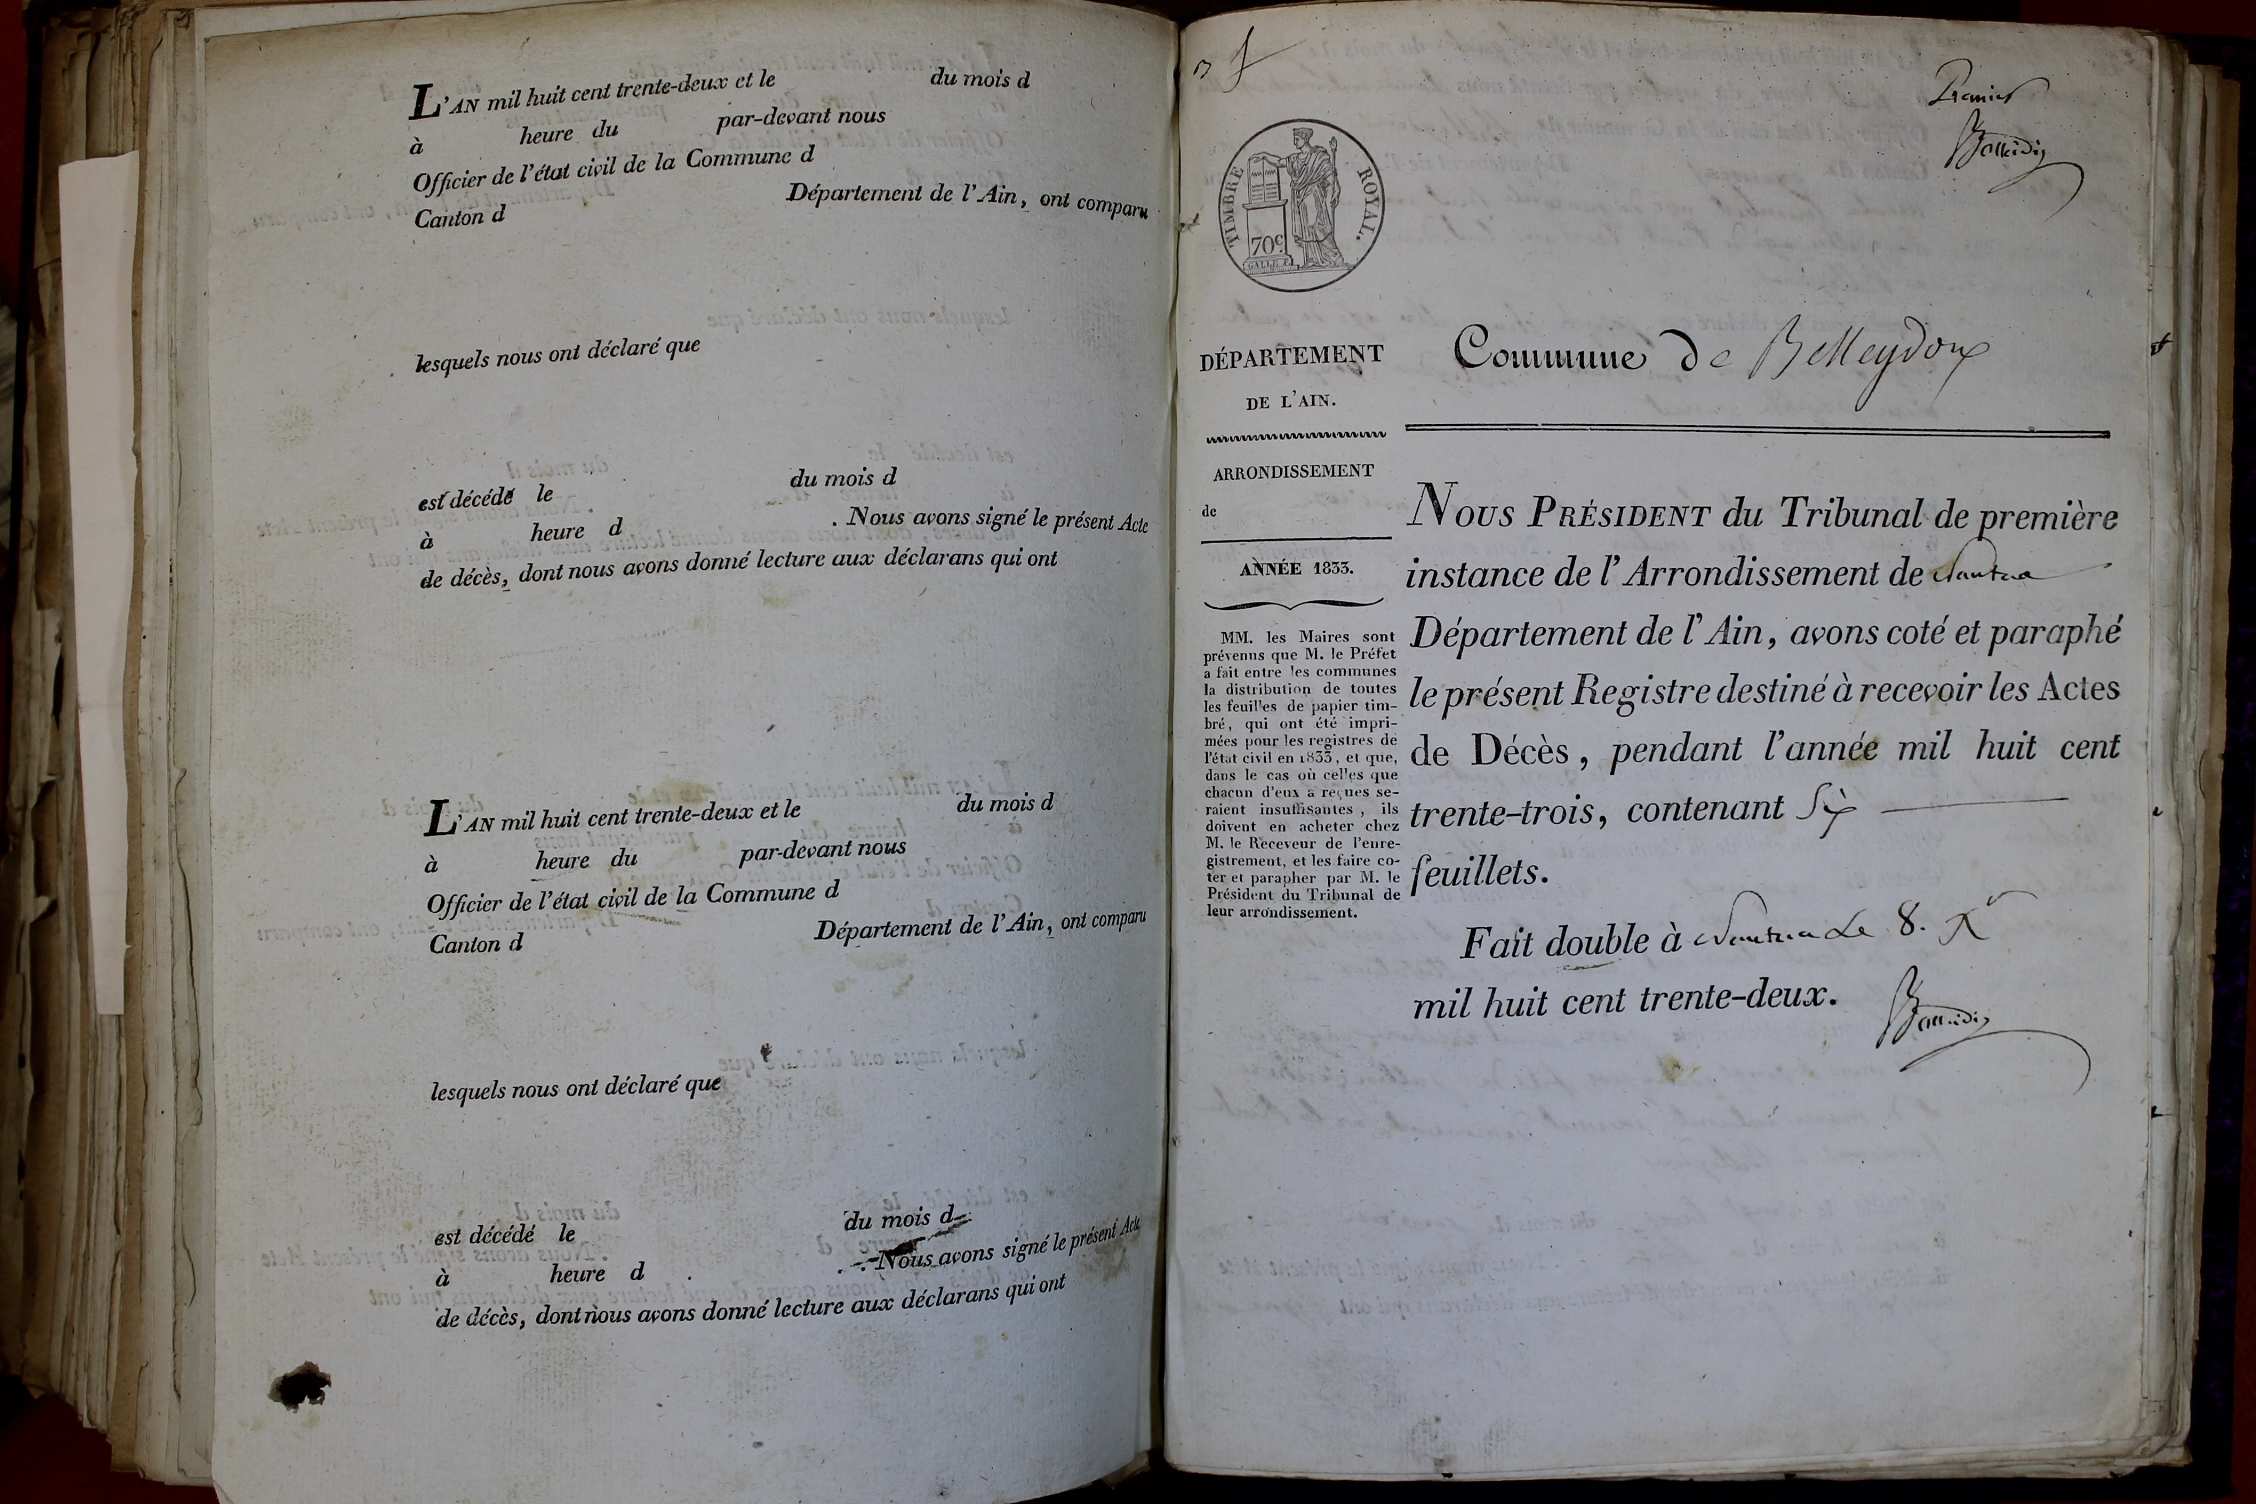 L'AN mil huit cent trente-deux et le du mois d
à heure du par-devant nous
Officier de l'état civil de la Commune d
Canton d Département de l'Ain, ont comparu
lesquels nous ont déclaré que
est décédé le du mois d
à heure d . Nous avons signé le présent Acte
de décès, dont nous avons donné lecture aux déclarans qui ont
L'AN mil huit cent trente-deux et le du mois d
à heure du par-devant nous
Officier de l'état civil de la Commune d
Canton d Département de l'Ain, ont comparu
lesquels nous ont déclaré que
est décédé le du mois d
à heure d . Nous avons signé le présent Acte
de décès, dont nous avons donné lecture aux déclarans qui ont
Premier
TIMBRE ROYAL.
70c.
GALLE F.
DÉPARTEMENT
DE L'AIN.
ARRONDISSEMENT
de
ANNÉE 1833.
MM. les Maires sont
prévenus que M. le Préfet
a fait entre les communes
la distribution de toutes
les feuilles de papier tim-
bré, qui ont été impri-
mées pour les registres de
l'état civil en 1833, et que,
dans le cas où celles que
chacun d'eux a reçues se-
raient insuffisantes, ils
doivent en acheter chez
M. le Receveur de l'enre-
gistrement, et les faire co-
ter et parapher par M. le
Président du Tribunal de
leur arrondissement.
Commune de Belleydoux
NOUS PRÉSIDENT du Tribunal de première
instance de l'Arrondissement de Nantua
Département de l'Ain, avons coté et paraphé
le présent Registre destiné à recevoir les Actes
de Décès, pendant l'année mil huit cent
trente-trois, contenant Six
feuillets.
Fait double à Nantua Le 8. Xr
mil huit cent trente-deux.